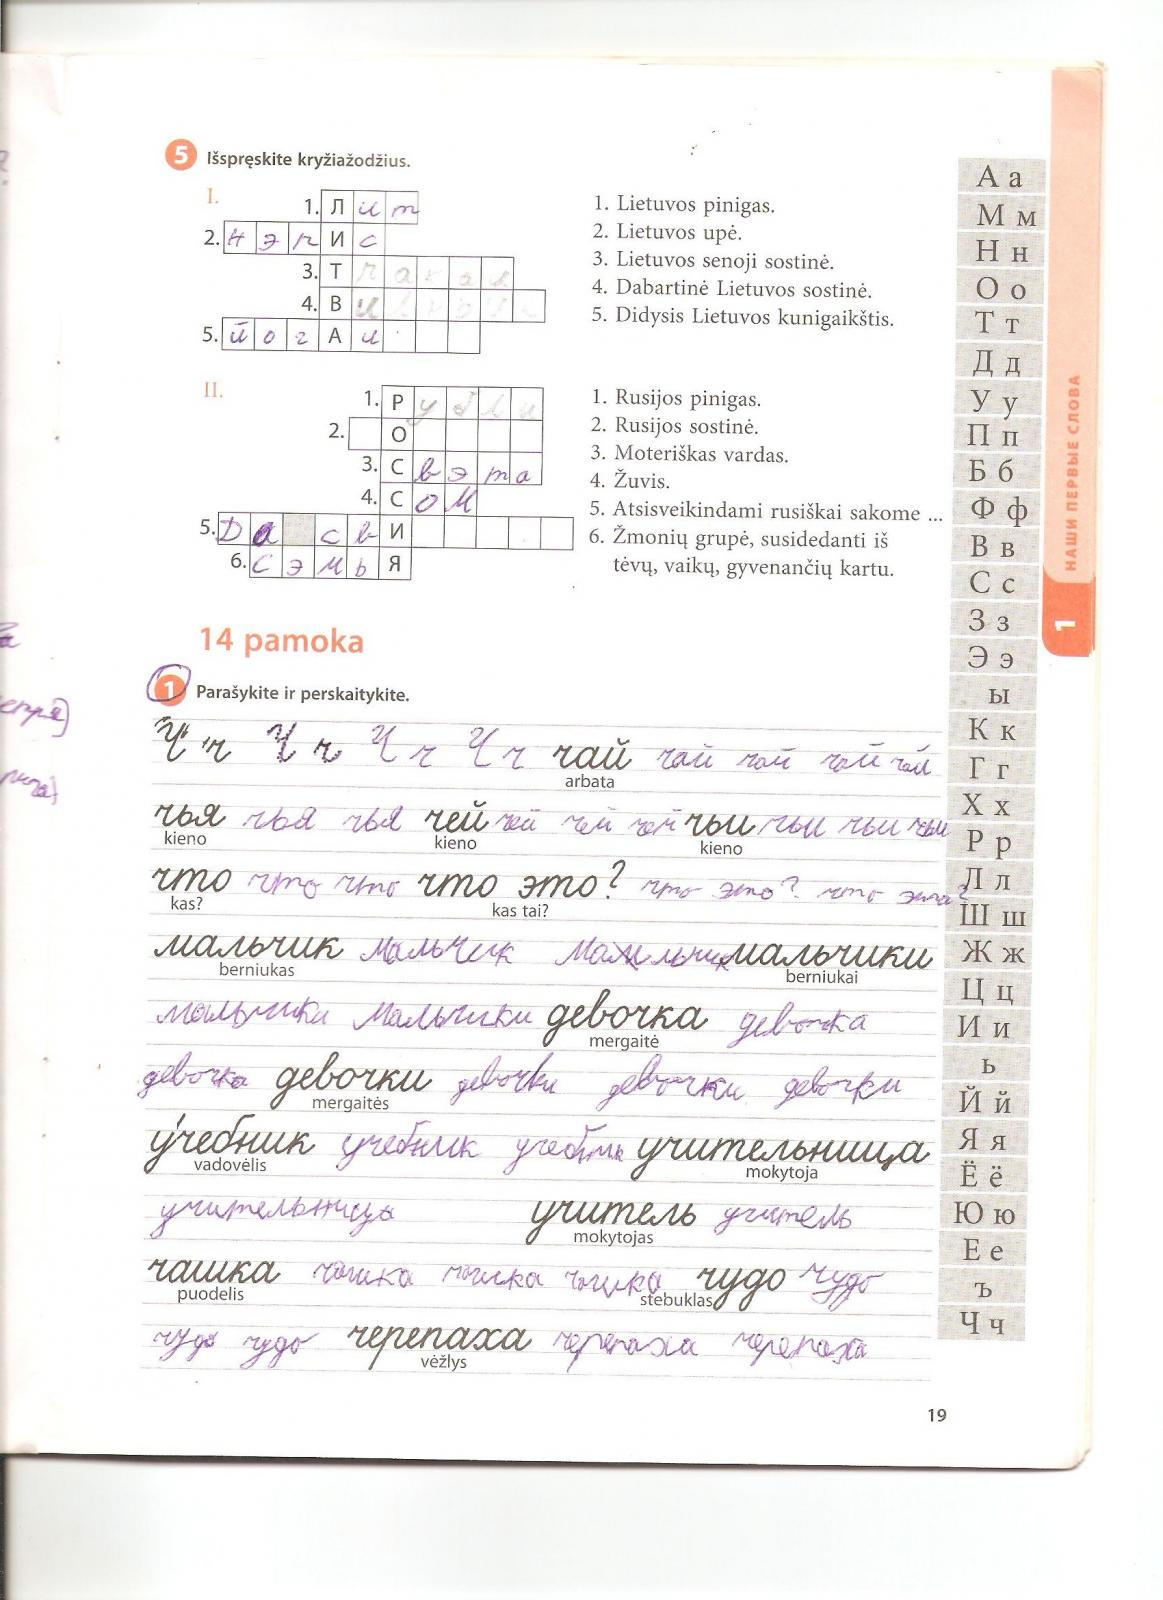 5 Išspręskite kryžiažodžius.
I.
1. Лит
2. Нэрис
3. Тракай
4. В
5. йогАи
1. Lietuvos pinigas.
2. Lietuvos upė.
3. Lietuvos senoji sostinė.
4. Dabartinė Lietuvos sostinė.
5. Didysis Lietuvos kunigaikštis.
II.
1. Рубли
2. О
3. Свэта
4. Сом
5. Да свИ
6. СэмьЯ
1. Rusijos pinigas.
2. Rusijos sostinė.
3. Moteriškas vardas.
4. Žuvis.
5. Atsisveikindami rusiškai sakome ...
6. Žmonių grupė, susidedanti iš
tėvų, vaikų, gyvenančių kartu.
14 pamoka
1 Parašykite ir perskaitykite.
Ч ч Ч ч Ч ч Ч ч чай чай чай чай чай
arbata
чья чья чья чей чей чей чей чьи чьи чьи чьи
kieno kieno kieno
что что что что это? что это? что это?
kas? kas tai?
мальчик мальчик мальчик мальчики
berniukas berniukai
мальчики мальчики девочка девочка
mergaitė
девочка девочки девочки девочки девочки
mergaitės
учебник учебник учебник учительница
vadovėlis mokytoja
учительница учитель учитель
mokytojas
чашка чашка чашка чашка чудо чудо
puodelis stebuklas
чудо чудо черепаха черепаха черепаха
vėžlys
19
А а
М м
Н н
О о
Т т
Д д
У у
П п
Б б
Ф ф
В в
С с
З з
Э э
ы
К к
Г г
Х х
Р р
Л л
Ш ш
Ж ж
Ц ц
И и
ь
Й й
Я я
Ё ё
Ю ю
Е е
ъ
Ч ч
НАШИ ПЕРВЫЕ СЛОВА
1